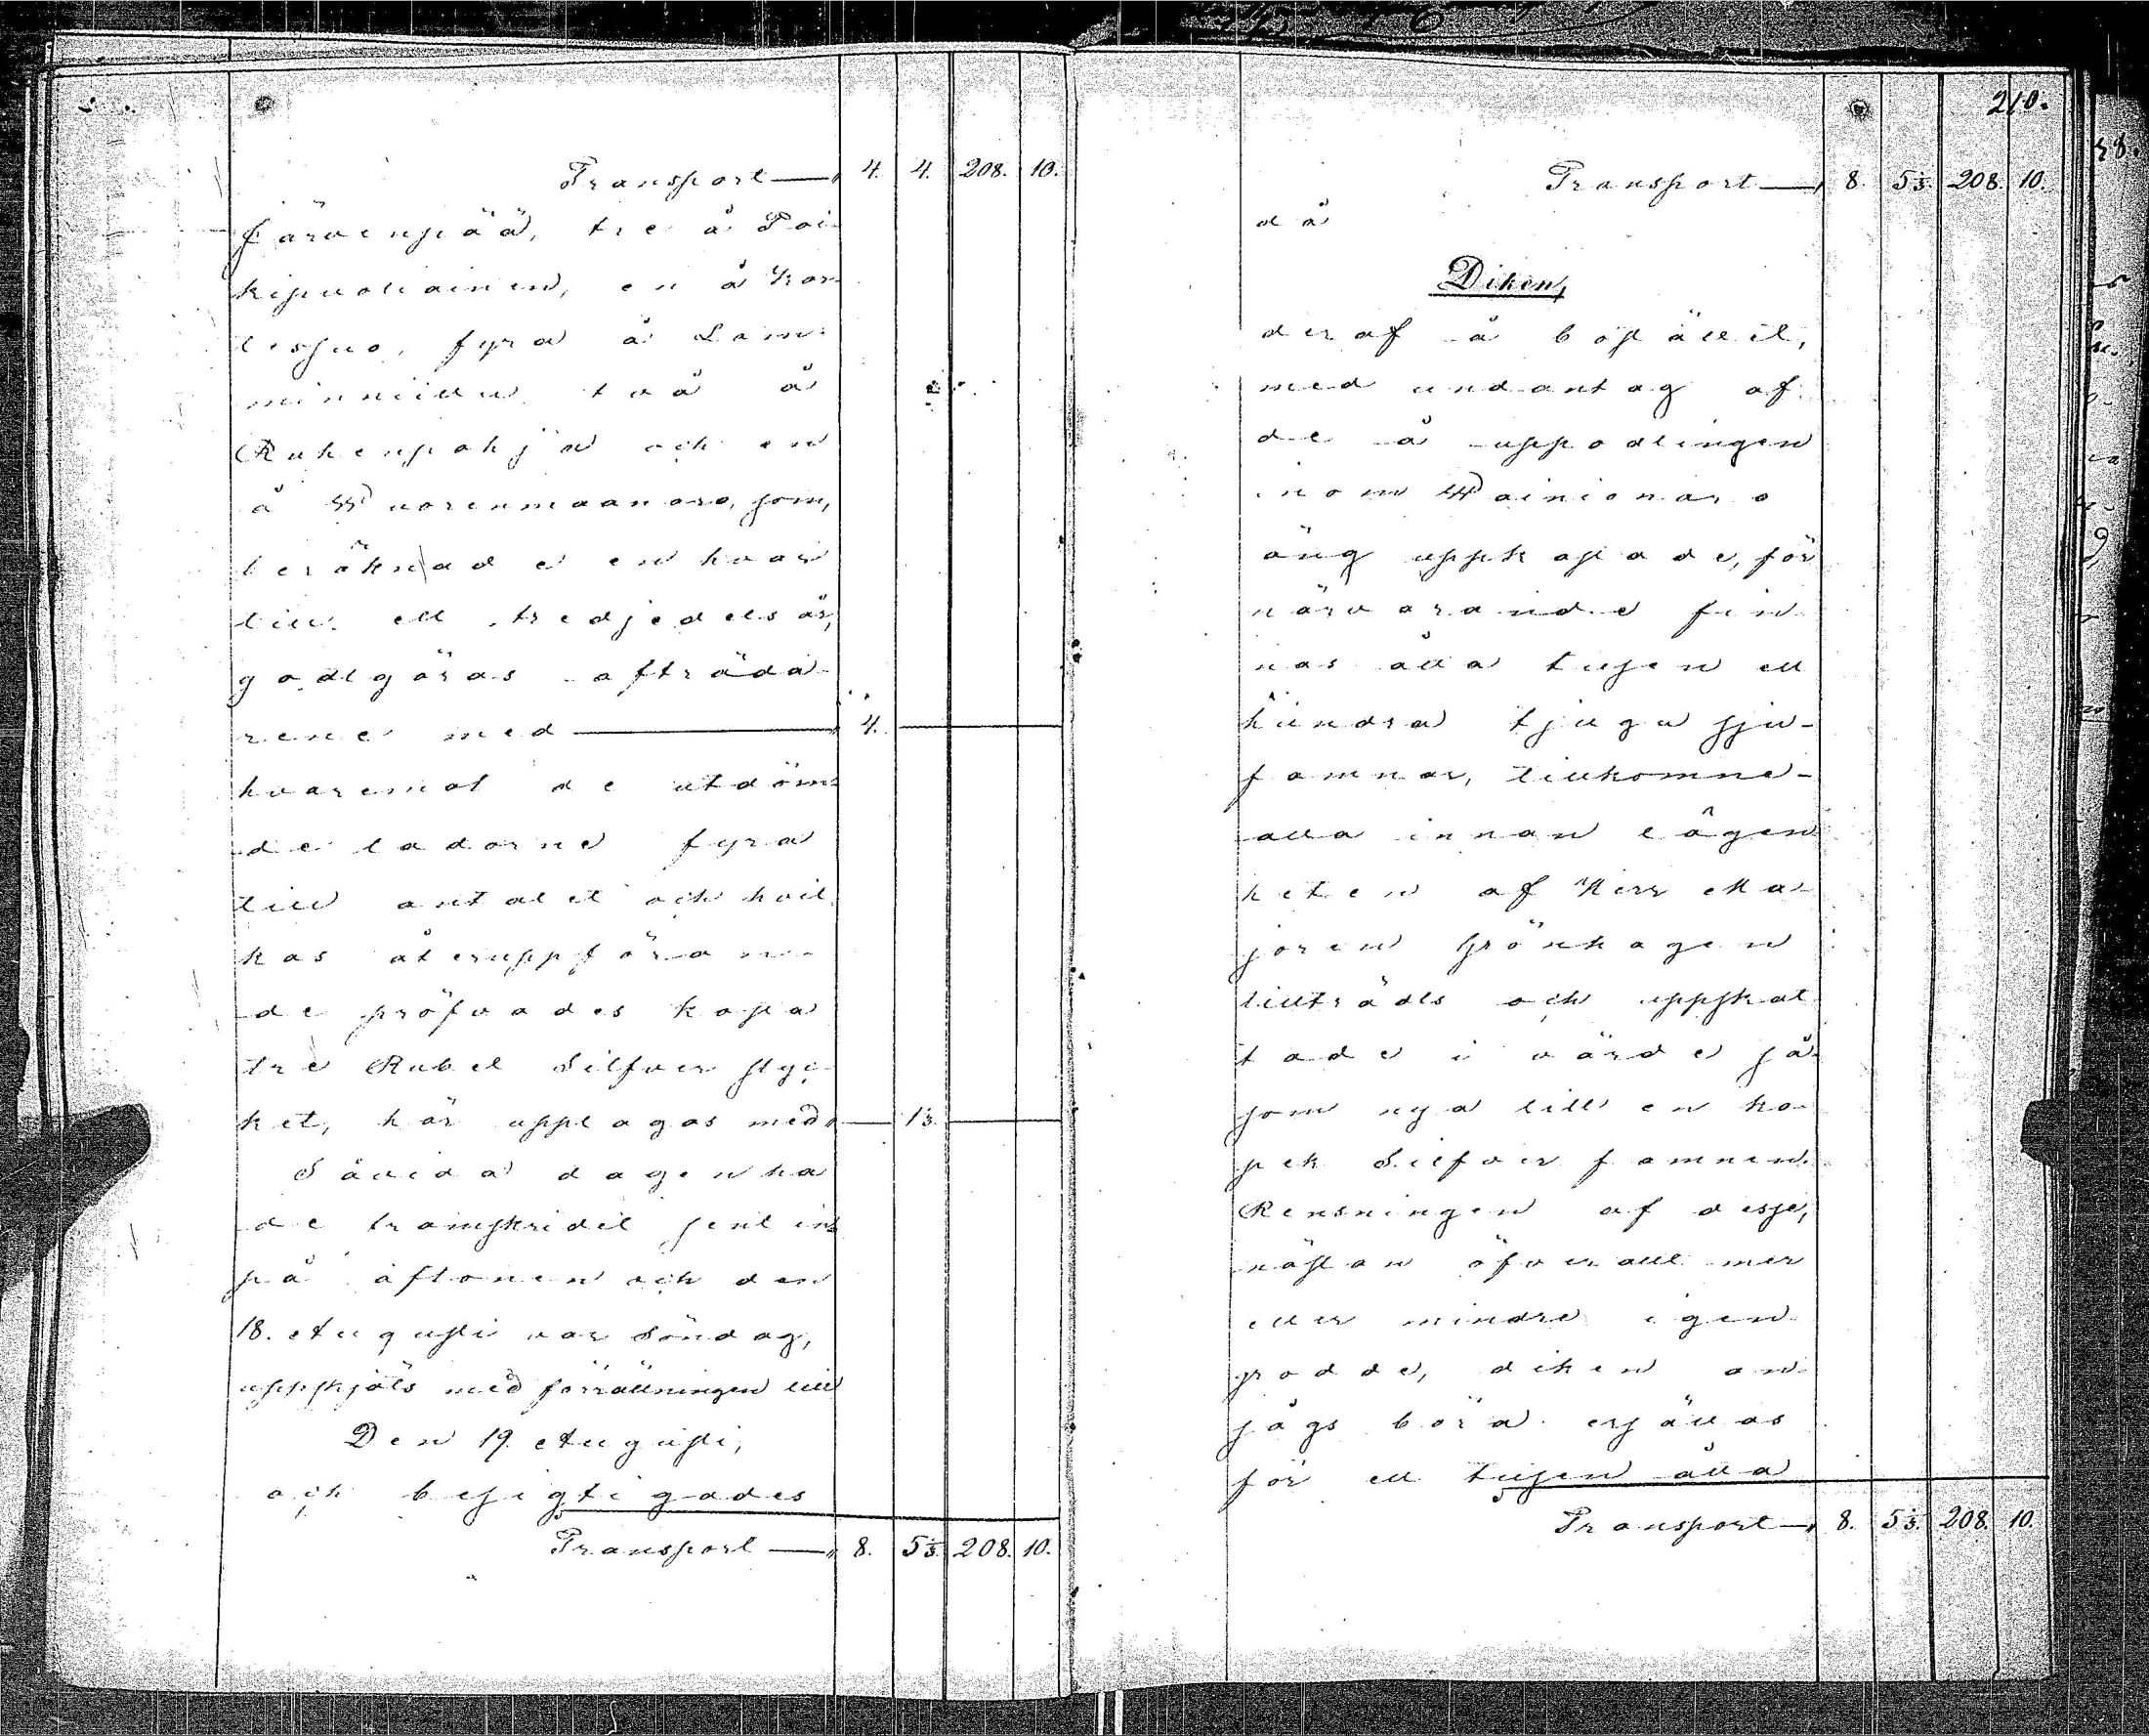 Transport — 4. 4. 208. 10.
Järvenpää, tre å Poi-
kipuoliainen, en å Kor-
lespuo, fyra å Lam-
minniittu två å
Ruhenpohja och en
å Wuorenmaanaro, som,
beräknade en hvar
till ett tredjedels år,
godtgöras afträda-
rene med — 4.
hvaremot de utdöm-
de ladorne fyra
till antalet och hvil-
kas återuppföran-
de pröfvades kosta
tre Rubel Silfver styc-
ket, här upptagas med — 1⅓.
Såvida dagen ha-
de framskridit sent in
på aftonen och den
18. Augusti var Söndag,
uppskjöts med förrättningen till
Den 19. Augusti,
och besigtigades
Transport — 8. 5⅓. 208. 10.
210.
Transport — 8. 5⅓. 208. 10.
då
Diken,
deraf å bostället,
med undantag af
de å uppodlingen
inom Wainionaro
äng uppkastade, för
närvarande fin-
nas åtta tusen ett
hundra tjugu sju
famnar, tillkomne
alla innan lägen-
heten af Herr Ma-
joren Grönhagen
tillträdts och uppskat-
tade i värde så-
som nya till en ko-
pek Silfver famnen.
Rensningen af desse,
nästan öfverallt mer
eller mindre igen-
grodde, diken an-
sågs böra ersättas
för ett tusen åtta
Transport — 8. 5⅓. 208. 10.